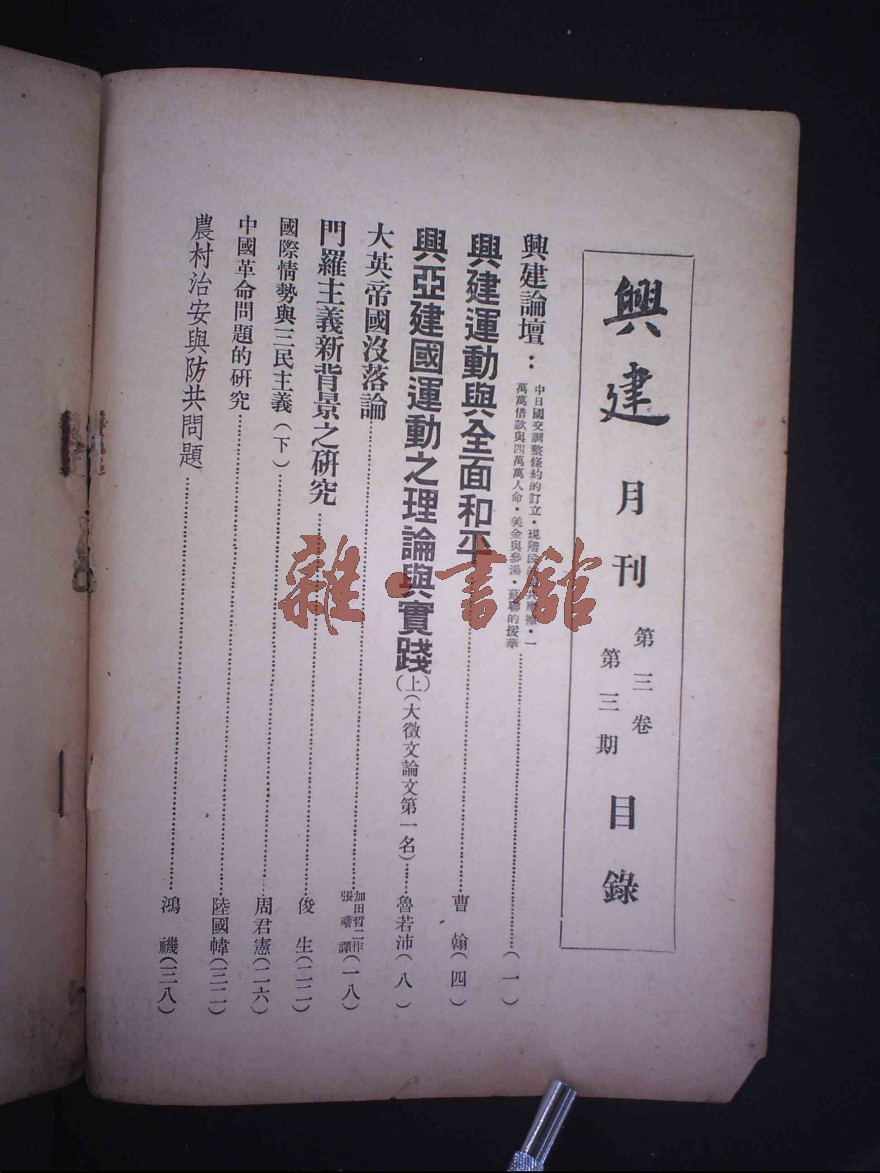 興建 月刊 第三卷 第三期 目錄
興建論壇：
中日國交調整條約的訂立・現階段
・一
萬萬借款與四萬萬人命・美金與參湯・蘇聯的援華
（一）
興建運動與全面和平 曹翰（四）
興亞建國運動之理論與實踐（上）（大徵文論文第一名） 魯若沛（八）
大英帝國沒落論 加田哲二作 張 譯（一八）
門羅主義新背景之研究 俊生（二二）
國際情勢與三民主義（下） 周君憲（二六）
中國革命問題的研究 陸國幃（三二）
農村治安與防共問題 鴻磯（三八）
雜・書館